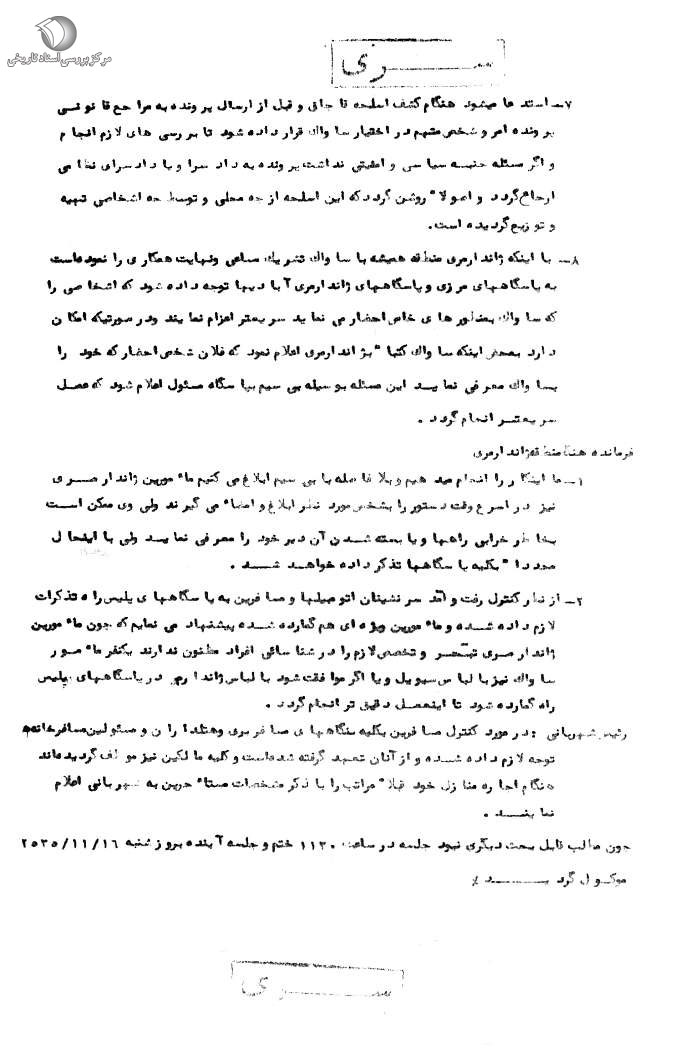 مرکز بررسی اسناد تاریخی
ســـری
۷ـ استد عا میشود هنگام کشف اسلحه قا چاق و قبل از ارسال پرونده به مرا جع قا نونی
پرونده امر و شخص متهم در اختیار سا واک قرار داده شود تا بررسی های لازم انجا م
و اگر مسئله جنبه سیا سی و امنیتی نداشت پرونده به داد سرا و یا دادسرای نظا می
ارجاع گردد و اصولا" روشن گردد که این اسلحه از چه محلی و توسط چه اشخاصی تهیه
و توزیع گردیده است.
۸ـ با اینکه ژاندارمری منطقه همیشه با سا واک تشریک مساعی ونهایت همکاری را نموده‌است
به پاسگاههای مرزی و پاسگاههای ژاندارمری آبادیها توجه داده شود که اشخاصی را
که سا واک بمنظورهای خاص احضار می نماید سریعتر اعزام نمایند ودر صورتیکه امکان
دارد بمحض اینکه سا واک کتبا" بژاندارمری اعلام نمود که فلان شخص احضار که خود را
بسا واک معرفی نماید این مسئله بوسیله بی سیم بپاسگاه مسئول اعلام شود که عمل
سریعتر انجام گردد .
فرمانده هنگ منطقه ژاندارمری
۱ـ ما اینکار را انجام میدهیم و بلا فاصله با بی سیم ابلاغ می کنیم ماء مورین ژاندارمری
نیز در اسرع وقت دستور را بشخص مورد نظر ابلاغ و امضاء می گیرند ولی وی ممکن است
بخاطر خرابی راهها و یا بسته شدن آن دیر خود را معرفی نماید ولی با اینحال
مجددا" بکلیه پاسگاهها تذکر داده خواهد شد .
۲ـ از نظر کنترل رفت و آمد سرنشینان اتومبیلها و مسافرین به پاسگاههای پلیس راه تذکرات
لازم داده شده و ماء مورین ویژه ای هم گمارده شده پیشنهاد می نمایم که چون ماء مورین
ژاندارمری تبحر و تخصص لازم را در شناسائی افراد مظنون ندارند یکنفر ماء مور
سا واک نیز با لباس سیویل و یا اگر موافقت شود با لباس ژاندارمری در پاسگاههای پلیس
راه گمارده شود تا اینعمل دقیق تر انجام گردد .
رئیس شهربانی : در مورد کنترل مسافرین بکلیه بنگاههای مسافربری وهتلداران و مسئولین مسافرخانه‌ها
توجه لازم داده شده و از آنان تعهد گرفته شده‌است و کلیه مالکین نیز موظف گردیده‌اند
هنگام اجاره منازل خود قبلا" مراتب را با ذکر مشخصات مستاء جرین به شهربانی اعلام
نمایند .
چون مطالب قابل بحث دیگری نبود جلسه در ساعت ۱۱۳۰ ختم و جلسه آینده بروز شنبه ۲۵۳۵/۱۱/۱۶
موکول گردید ٪
ســـری